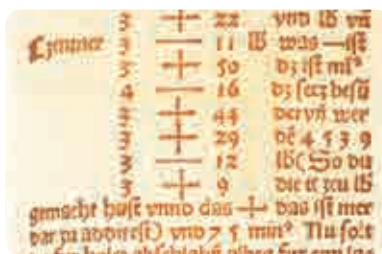 3 + 22 vnd lb vñ
Czentner 3 — 11 lb was — ist
3 + 50 dz ist miꝰ
4 — 16 dz secz besū
3 + 44 der vñ wer
3 + 29 dē 4 5 3 9
3 — 12 lb (So du
3 + 9 die zcu lb
gemacht hast vnnd das + das ist mer
dar zu addirest) vnd 7 5 minꝰ Nu solt